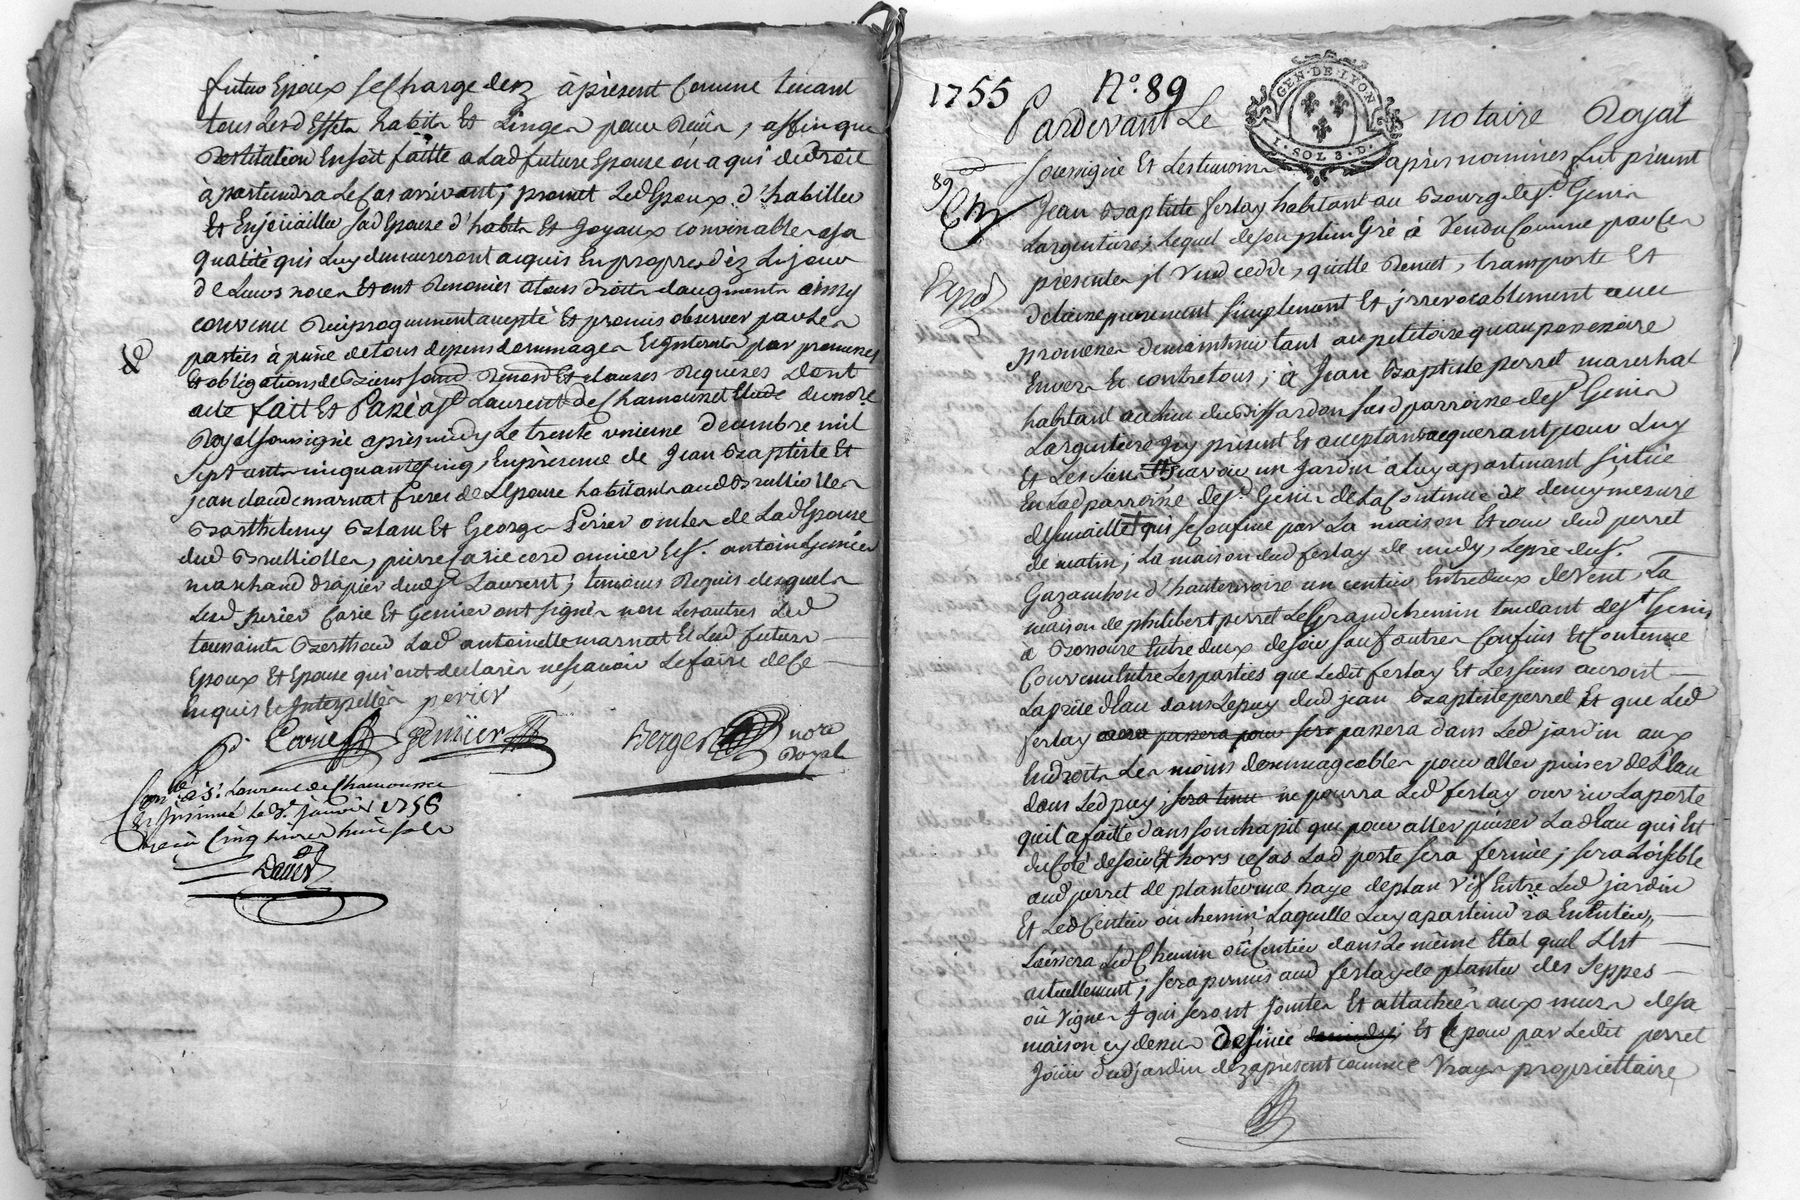 futur Epoux se Charge dez àprésent Comme tenant
tous Lesd Effets habits Et Linges pour Reçûs, affin que
Restitution En soit faitte a Lad future Epouse ou a qui de droit
àpartiendra Le Cas arrivant, promet Led Epoux d'habiller
Et Enjoüailler sad Epouse d'habits Et Joyaux convenables a sa
qualité qui Luy demeureront acquis En propre dèz Le jour
de Leurs noces Et ont Renonces a tous droits daugments ainsy
convenu Reciproquement accepté Et promis observer par Les
parties à peine de tous depens dommages Et Interets par promesses
Et obligations de Biens soumd Renond Et clauses Requises Dont
acte fait Et Passé a St Laurent de Chamousset Etude du nore
Royal soussigné aprés midy Le trente unieme decembre mil
sept cents cinquante cinq, En presence de Jean Baptiste Et
jean claude marnat freres de L'Epouse habitants aud Brulliolles
Barthelemy Blanc Et George Perier oncles de Lad Epouse
dud Brulliolles, pierre Carie cordonnier Et Sr. antoine Genier
marchand drapier dud St Laurent; temoins Requis desquels
Led perier Carie Et Genier ont signés non Les autres Led
toussaint Berthoud Lad antoinette marnat Et Led futurs
Epoux Et Epouse qui ont declarés ne scavoir Le faire de Ce
Enquis Et Interpellés perier
Carie Genier Berger nore
Royal
Conllé à St. Laurent de Chamousset
Et Insinué le 3e. janvier 1756
Reçu Cinq livres huit sols
1755 N°. 89
GEN. DE LYON
1. SOL 3. D.
Pardevant Le notaire Royal
soussigné Et Les temoins aprés nommés fut présent
89
Jean Baptiste ferlay habitant au Bourg de St. Genis
Largentiere; Lequel de son plein Gré à Vendu Comme par Ces
Expd
presentes jl Vend cedde, quitte Remet, transporte Et
delaisse purement simplement Et jrrevocablement avec
promesse de maintenir tant au petitoire quau possessoire
Envers Et contre tous; a Jean Baptiste perret mareshal
habitant au lieu du Biffardon susd parroisse de St Genis
Largentiere jcy présent Et acceptant acquerant pour Luy
Et Les siens scavoir un Jardin a luy apartenant situé
En Lad parroisse de St. Genis de La Continue de deux mesure
de semaille qui se confine par La maison Et cour dud perret
de matin; La maison dud ferlay de midy, Le pré du Sr.
Gazanchon d'hauterivoire un sentier Entredeux de Vent, La
maison de philibert perret Le Grand chemin tendant de St Genis
a Bronoire Entre deux de soir sauf autres Confins Et Contenue
Convenu Entre Les parties que Ledit ferlay Et Les siens auront
La prise d'Eau dans Le puy dud jean Baptiste perret Et que Led
ferlay passera dans Led jardin aux
Endroits Les moins dommageables pour aller puiser de L'Eau
dans Led puy; ne pourra Led ferlay ouvrir La porte
quil a faitte dans son chapit que pour aller puiser Lad Eau qui Est
du Coté de soir Et hors ce Cas Lad porte sera fermée; sera Loisible
aud perret de planter une haye de plan vif Entre Led jardin
Et Led Sentier ou chemin, Laquelle Luy apartiendra En Entier,
Laissera Led Chemin ou Sentier dans Le même Etat quil L'Est
actuellement; sera permis aud ferlay de planter des seppes
ou Vignes qui seront Jointes Et attachées aux murs de sa
maison cy dessus Et pour par Ledit perret
Joüir dud jardin dez aprésent comme Vrays propriettaire